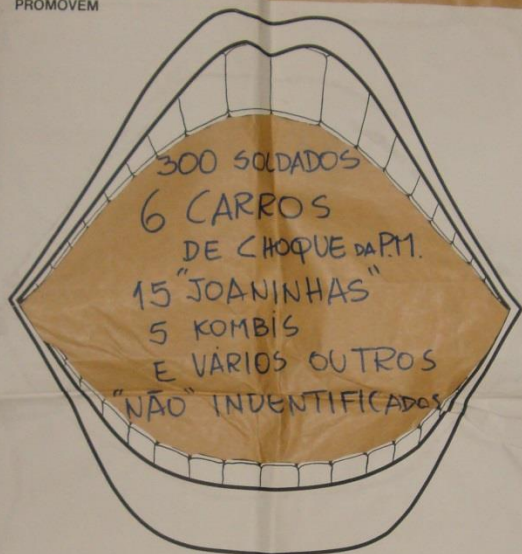 PROMOVEM
300 SOLDADOS
6 CARROS
DE CHOQUE DA P.M.
15 "JOANINHAS"
5 KOMBIS
E VÁRIOS OUTROS
"NÃO" INDENTIFICADOS